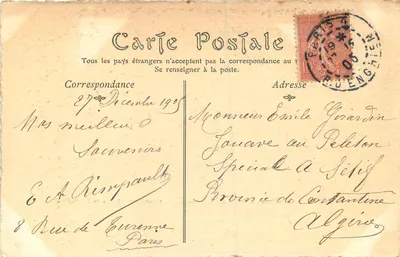 Carte Postale
Tous les pays étrangers n'acceptent pas la correspondance au
Se renseigner à la poste.
Correspondance
Adresse
PARIS 4
R. D'ENGHIEN
05
27 Décembre 1905
Mes meilleurs
Souvenirs
E A
8 Rue de Turenne
Paris
Monsieur Emile Girardin
Zouave au Peloton
Spécial à Sétif
Province de Constantine
Algérie